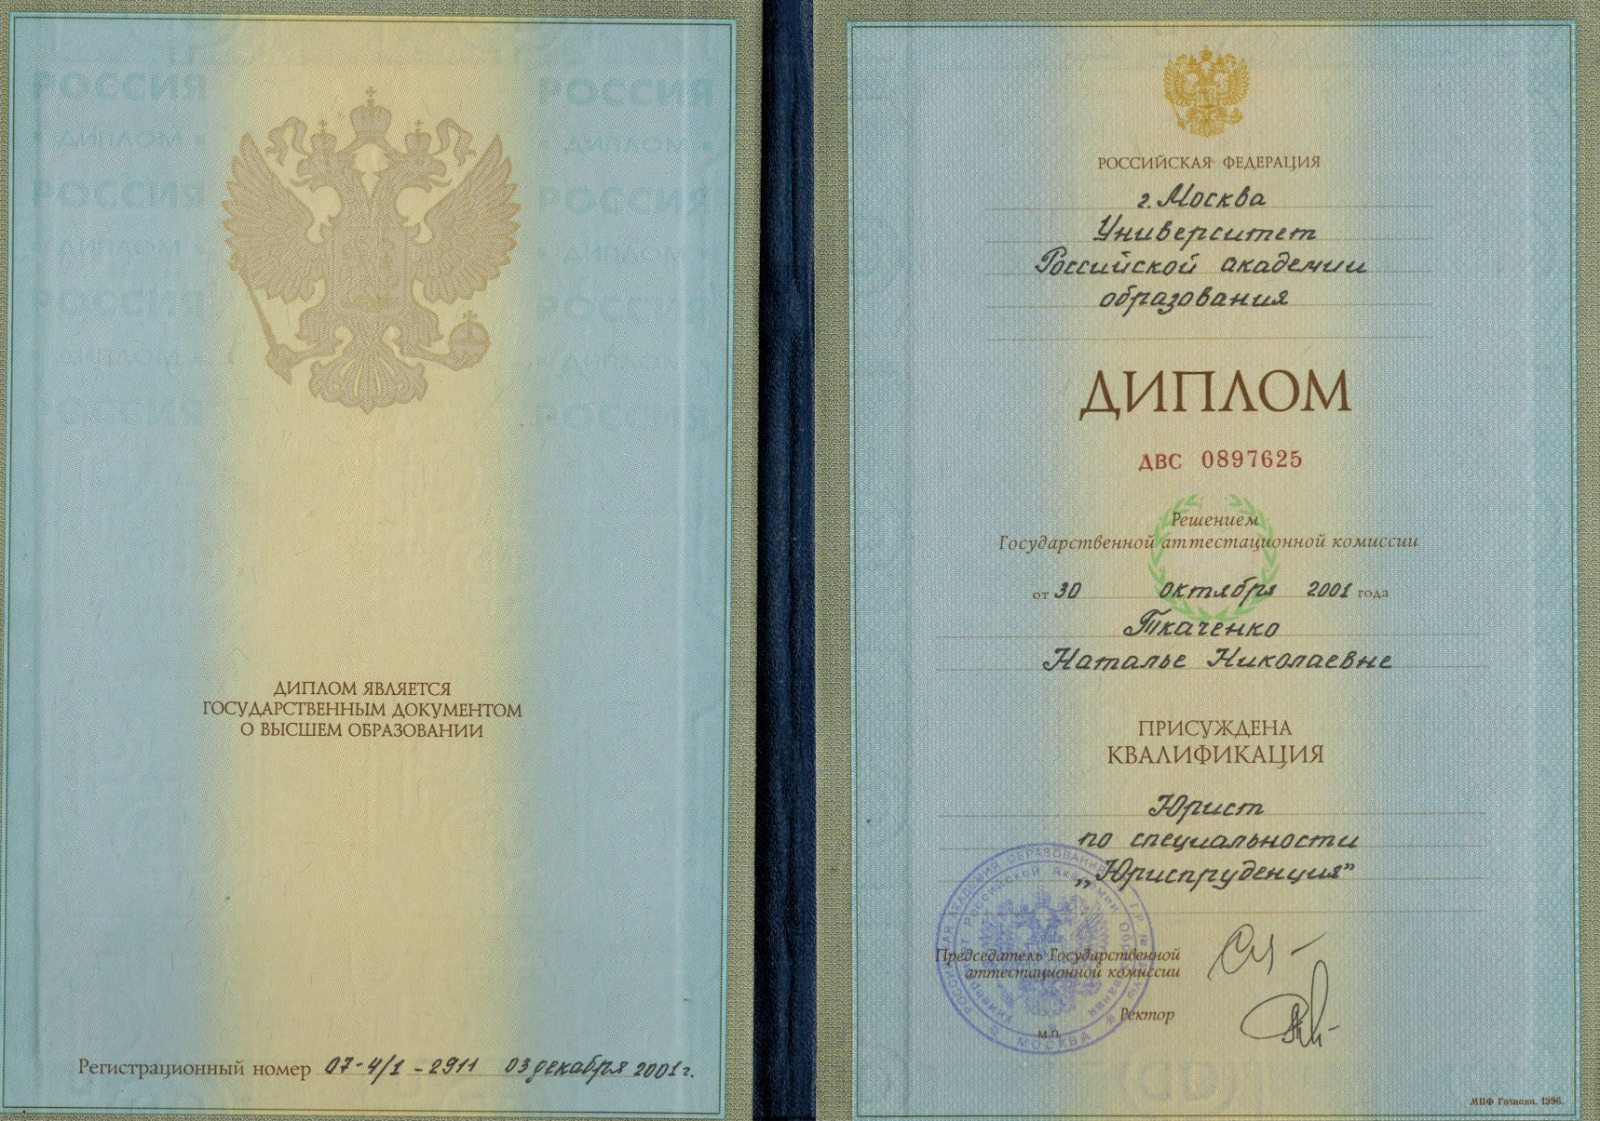 РОССИЯ РОССИЯ
* ДИПЛОМ * * ДИПЛОМ *
РОССИЯ РОССИЯ
* ДИПЛОМ * * ДИПЛОМ *
РОССИЯ РОССИЯ
* ДИПЛОМ * * ДИПЛОМ *
РОССИЯ РОССИЯ
ДИПЛОМ ЯВЛЯЕТСЯ
ГОСУДАРСТВЕННЫМ ДОКУМЕНТОМ
О ВЫСШЕМ ОБРАЗОВАНИИ
Регистрационный номер 07-4/1-2911 03 декабря 2001 г.
РОССИЙСКАЯ ФЕДЕРАЦИЯ
г. Москва
Университет
Российской академии
образования
ДИПЛОМ
ДВС 0897625
Решением
Государственной аттестационной комиссии
от 30 октября 2001 года
Ткаченко
Наталье Николаевне
ПРИСУЖДЕНА
КВАЛИФИКАЦИЯ
Юрист
по специальности
„Юриспруденция”
Председатель Государственной
аттестационной комиссии
Ректор
М.П.
РОССИЙСКАЯ АКАДЕМИЯ ОБРАЗОВАНИЯ
Университет Российской Академии Образования
МОСКВА
МПФ Гознака. 1996.